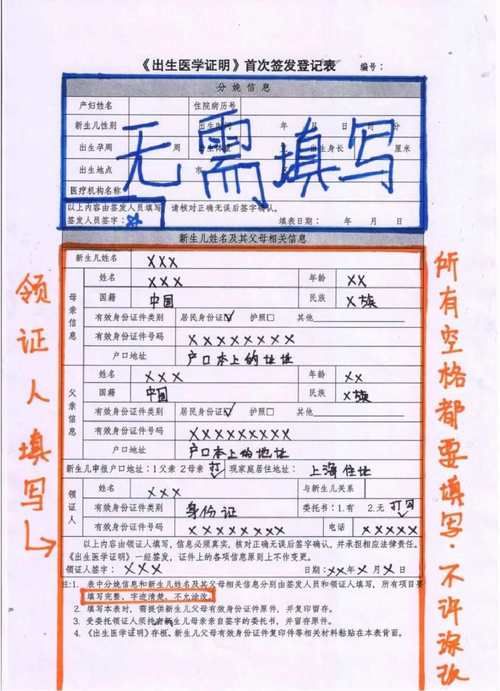 《出生医学证明》首次签发登记表 编号:
分娩信息
产妇姓名 住院病历号
新生儿性别 出生时间 年 月 日 时 分
出生孕周 周 出生身长 厘米
出生地点 市
医疗机构名称
无需填写
以上内容由签发人员填写,请核对正确无误后签字确认。
签发人员签字: 填表日期: 年 月 日
新生儿姓名及其父母相关信息
新生儿姓名 XXX
母亲信息
姓名 XXX 年龄 XX
国籍 中国 民族 X族
有效身份证件类别 居民身份证☑ 护照□ 其他
有效身份证件号码 XXXXXXXX
户口地址 户口本上的地址
父亲信息
姓名 XXX 年龄 XX
国籍 中国 民族 X族
有效身份证件类别 居民身份证☑ 护照□ 其他
有效身份证件号码 XXXXXXXXX
户口地址 户口本上的地址
新生儿申报户口地址:1父亲 2母亲 打√ 现家庭居住地址: 上海住址
领证人
姓名 XXX 与新生儿关系
有效身份证件类别 身份证 委托书:1.有 2.无 打√
有效身份证件号码 XXXXXXX 电话 XXXXX
以上内容由领证人填写,信息必须真实,核对正确无误后签字确认,并承担相应法律责任。
《出生医学证明》一经签发,证件上的各项信息原则上不作变更。
领证人签字: XXX 日期:XX年X月X日
注:1. 表中分娩信息和新生儿姓名及其父母相关信息分别由签发人员和领证人填写,所有项目要
填写完整、字迹清楚、不允涂改。
2. 填写本表时,需提供新生儿父母有效身份证件原件,并复印留存。
3. 受委托领证人须持有新生儿母亲亲自签字的委托书,并留存原件。
4. 《出生医学证明》存根、新生儿父母有效身份证件复印件等相关材料粘贴在本表背面。
领证人填写
所有空格都要填写.不许涂改